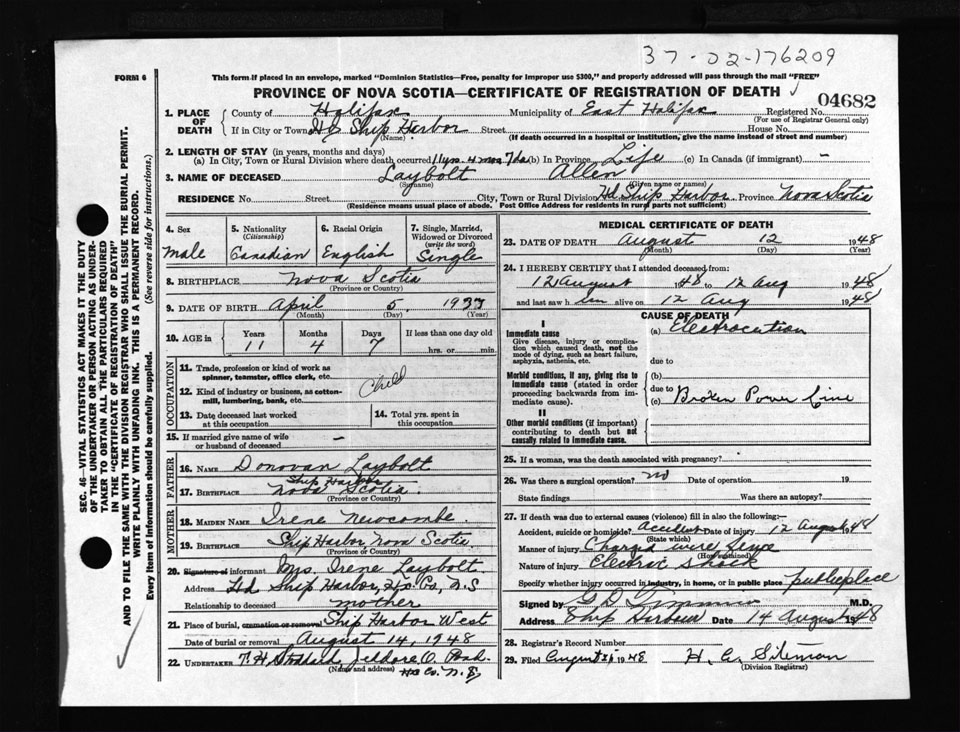 37-02-176209
FORM 6
This form if placed in an envelope, marked "Dominion Statistics—Free, penalty for improper use $300," and properly addressed will pass through the mail "FREE"
PROVINCE OF NOVA SCOTIA—CERTIFICATE OF REGISTRATION OF DEATH
04682
1. PLACE OF DEATH
County of Halifax Municipality of East Halifax Registered No.
(For use of Registrar General only)
If in City or Town Hd Ship Harbor Street House No.
(Name) (If death occurred in a hospital or institution, give the name instead of street and number)
2. LENGTH OF STAY (in years, months and days)
(a) In City, Town or Rural Division where death occurred 11 yrs. 4 mos 7 da (b) In Province Life (c) In Canada (if immigrant) —
3. NAME OF DECEASED Laybolt Allen
(Surname) (Given name or names)
RESIDENCE No. Street City, Town or Rural Division Hd Ship Harbor Province Nova Scotia
(Residence means usual place of abode. Post Office Address for residents in rural parts not sufficient)
4. Sex
Male
5. Nationality
(Citizenship)
Canadian
6. Racial Origin
English
7. Single, Married, Widowed or Divorced
(write the word)
Single
8. BIRTHPLACE Nova Scotia
(Province or Country)
9. DATE OF BIRTH April 5, 1937
(Month) (Day) (Year)
10. AGE in Years Months Days If less than one day old
11 4 7 hrs. or min.
OCCUPATION
11. Trade, profession or kind of work as spinner, teamster, office clerk, etc.
Child
12. Kind of industry or business, as cotton-mill, lumbering, bank, etc.
13. Date deceased last worked at this occupation
14. Total yrs. spent in this occupation
15. If married give name of wife or husband of deceased —
FATHER
16. NAME Donovan Laybolt
17. BIRTHPLACE Ship Harbor Nova Scotia
(Province or Country)
MOTHER
18. MAIDEN NAME Irene Newcombe
19. BIRTHPLACE Ship Harbor Nova Scotia
(Province or Country)
20. Signature of informant Mrs. Irene Laybolt
Address Hd Ship Harbor, Hx. Co, N.S
Relationship to deceased mother
21. Place of burial, cremation or removal Ship Harbor West
Date of burial or removal August 14, 1948
22. UNDERTAKER T. H. Stoddard, Jeddore O. Pond.
(Name and address) Hx Co. N.S
MEDICAL CERTIFICATE OF DEATH
23. DATE OF DEATH August 12 1948
(Month) (Day) (Year)
24. I HEREBY CERTIFY that I attended deceased from:
12 August 1948 to 12 Aug 1948
and last saw him alive on 12 Aug 1948
CAUSE OF DEATH
I
Immediate cause (a) Electrocution
Give disease, injury or complication which caused death, not the mode of dying, such as heart failure, asphyxia, asthenia, etc.
due to
Morbid conditions, if any, giving rise to immediate cause (stated in order proceeding backwards from immediate cause).
(b)
due to
(c) Broken Power Line
II
Other morbid conditions (if important) contributing to death but not causally related to immediate cause.
25. If a woman, was the death associated with pregnancy?
26. Was there a surgical operation? no Date of operation 19
State findings Was there an autopsy?
27. If death was due to external causes (violence) fill in also the following:—
Accident, suicide or homicide? Accident Date of injury 12 August 1948
(State which)
Manner of injury Charged wire fence
(How sustained)
Nature of injury Electric shock
Specify whether injury occurred in industry, in home, or in public place public place
Signed by G D M.D.
Address Ship Harbour Date 14 August 1948
28. Registrar's Record Number
29. Filed August 1948 H. E. Siteman
(Division Registrar)
SEC. 46—VITAL STATISTICS ACT MAKES IT THE DUTY
OF THE UNDERTAKER OR PERSON ACTING AS UNDER-
TAKER TO OBTAIN ALL THE PARTICULARS REQUIRED
IN THE "CERTIFICATE OF REGISTRATION OF DEATH"
AND TO FILE THE SAME WITH THE DIVISION REGISTRAR WHO SHALL ISSUE THE BURIAL PERMIT.
WRITE PLAINLY WITH UNFADING INK. THIS IS A PERMANENT RECORD.
Every item of information should be carefully supplied. (See reverse side for instructions.)